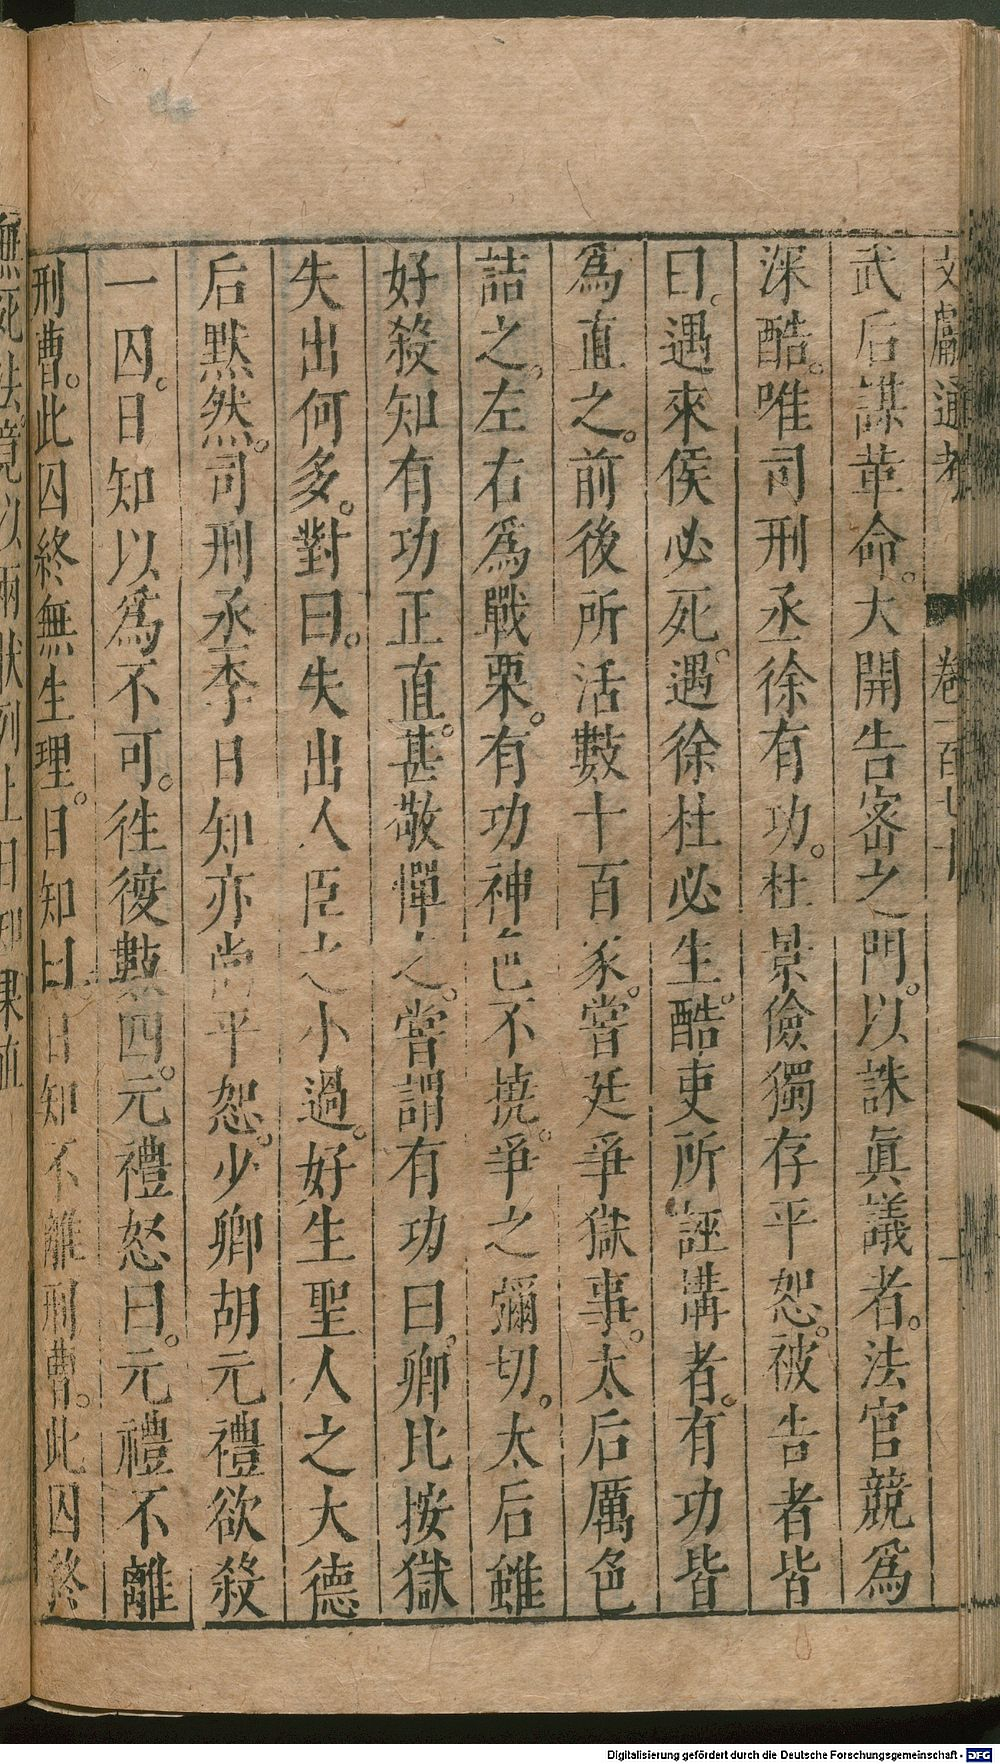 文獻通考 卷一百七十 一
武后謀革命。大開告密之門。以誅眞議者。法官競爲
深酷。唯司刑丞徐有功。杜景儉獨存平恕。被告者皆
曰。遇來侯必死。遇徐杜必生。酷吏所誣搆者。有功皆
爲直之。前後所活數十百家。嘗廷爭獄事。太后厲色
詰之。左右爲戰栗。有功神色不撓。爭之彌切。太后雖
好殺知有功正直。甚敬憚之。嘗謂有功曰。卿比按獄
失出何多。對曰。失出人臣之小過。好生聖人之大德
后默然。司刑丞李日知亦尚平恕。少卿胡元禮欲殺
一囚。日知以爲不可。徃復數四。元禮怒曰。元禮不離
刑曹。此囚終無生理。日知曰日知不離刑曹。此囚終
無死法。竟以兩狀列上日知果直
Digitalisierung gefördert durch die Deutsche Forschungsgemeinschaft - DFG